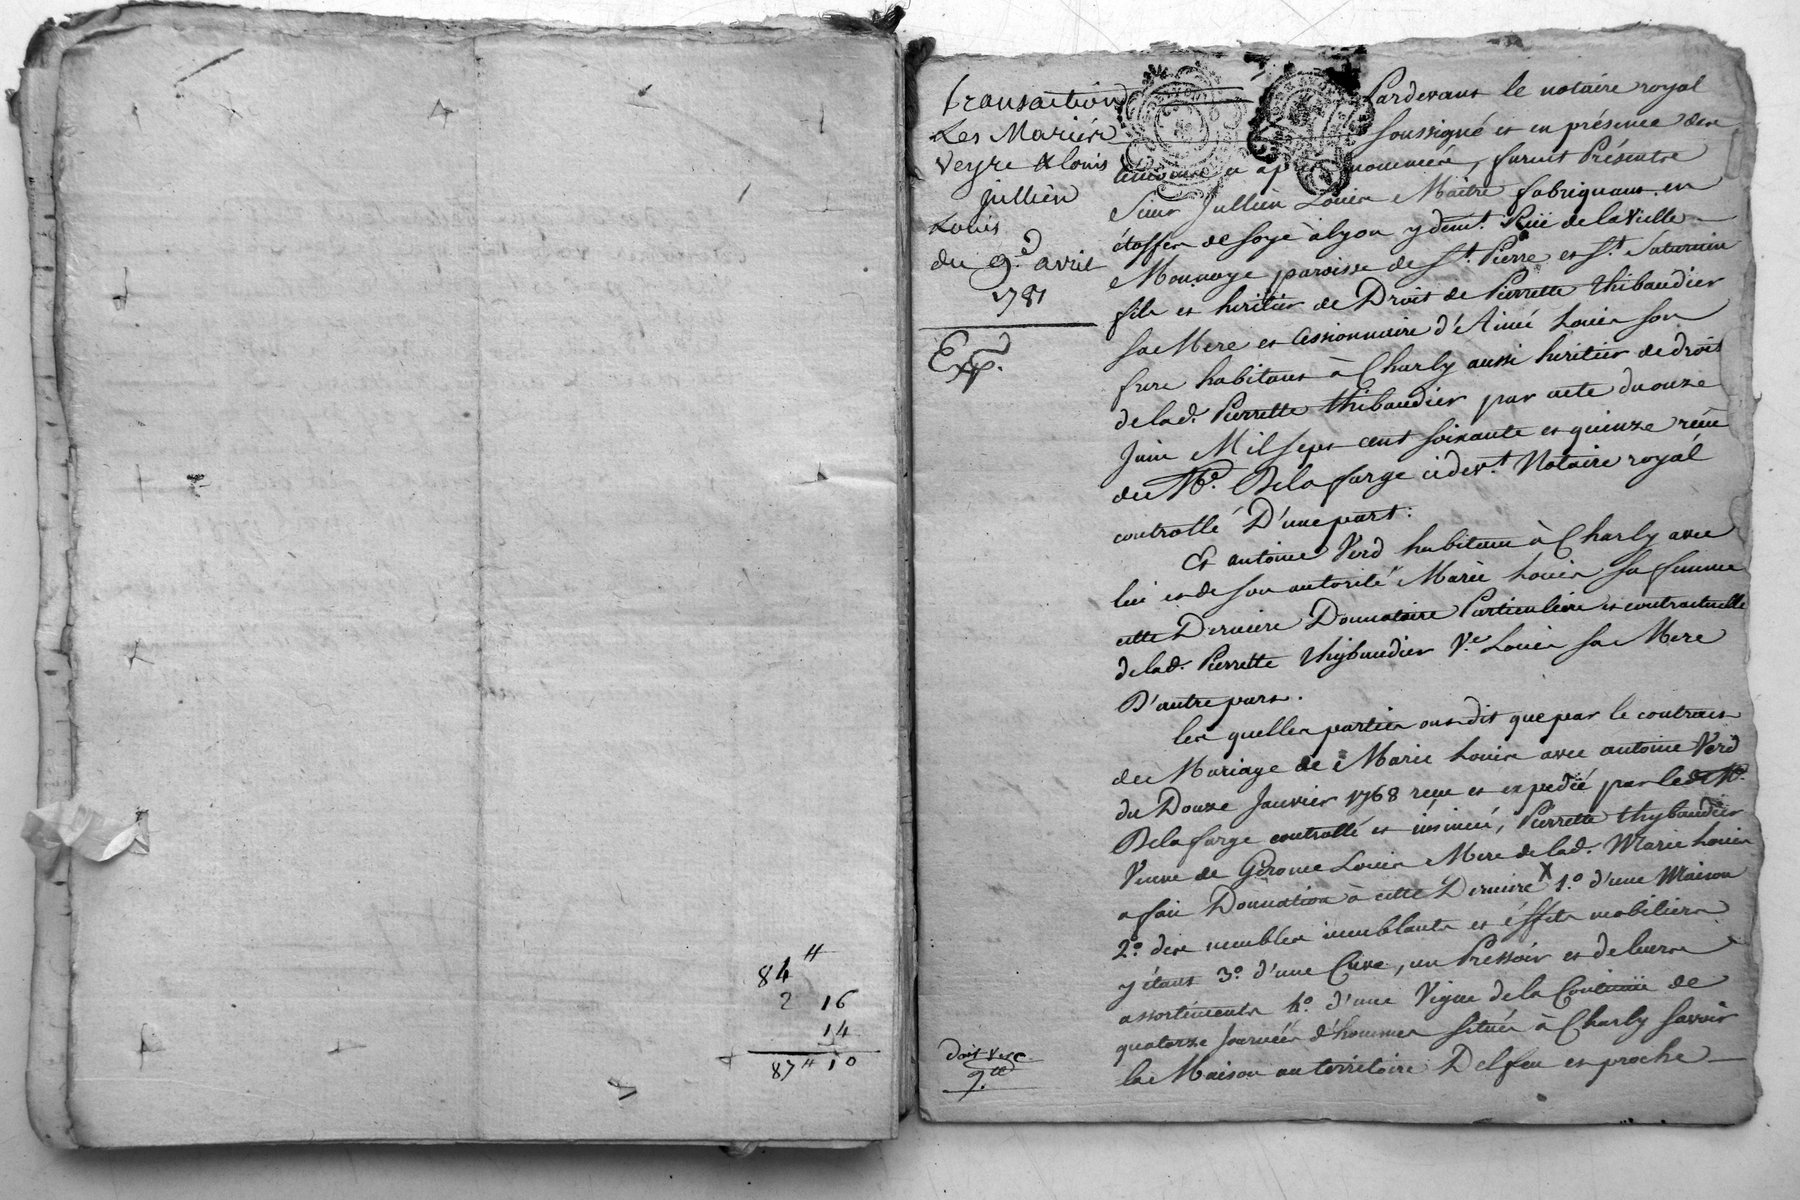 84 ₶
2 16
14
87 ₶ 10
transaction
Les Mariés
Veyre & louis
jullien
Louis
du 9.e avril
1781
Exp.
doit Verd
9.tt
Pardevant le notaire royal
soussigné et en présence des
temoins cy après nommés, furent Présents
Sieur Jullien Louis Maitre fabriquant en
étoffes de soye à lyon y demt. Rüe de la vielle
Monnoye paroisse de St. Pierre et St. Saturnin
fils et heritier de Droit de Pierrette thibaudier
sa Mere et Cessionnaire d'Aimé Louis son
frere habitant à Charly aussi heritier de droit
de lad. Pierrette thibaudier par acte du onze
Juin Mil sept cent soixante et quinze reçu
du Me. Delafarge cidevt. Notaire royal
controllé D'une part:
Et antoine Verd habitant à Charly avec
lui et de son autorité Marie Louis sa femme
cette Derniere Donnataire Particuliere et contractuelle
de lad. Pierrette thybaudier Ve. Louis sa Mere
D'autre part.
les quelles parties ont dit que par le contract
de Mariage de Marie Louis avec antoine Verd
du Douze Janvier 1768 reçu et expedié par led. Me.
Delafarge controllé et insinué, Pierrette thybaudier
Veuve de Gérome Louis Mere de lad. Marie Louis
a fait Donnation à cette Derniere X 1.o d'une Maison
2.o des meubles meublants et éffets mobiliers
y étant 3.o d'une Cuve, un Pressoir et de leurs
assortiments 4.o d'une Vigne de la Contenüe de
quatorze Journées d'hommes située à Charly savoir
la Maison au territoire Delfeu et proche